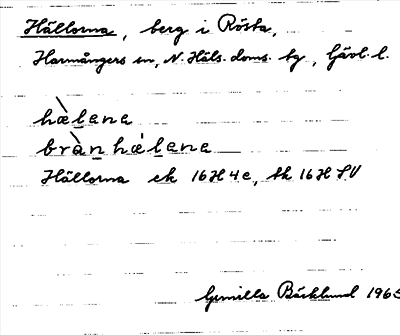 Hällorna, berg i Rösta,
Harmångers sn, N. Häls. doms. bg, Gävl. l.
hæ̀lena
brànhǽlena
Hällorna ek 16H4e, tk 16H SV
Gunilla Bäcklund 1965